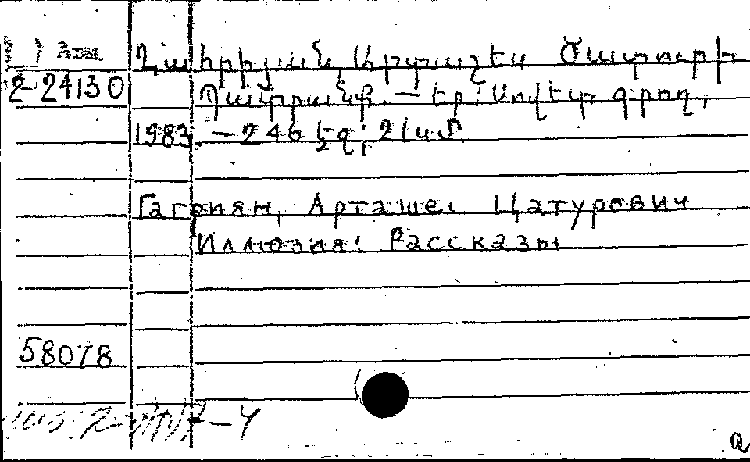 Ղահրիյան Արտաշես Ծատուրի
2-24130 Պատրանք. — Եր.: Սովետ. գրող,
1983. — 246 էջ; 21սմ
Гагриян, Арташес Цатурович
Иллюзия: Рассказы
58078